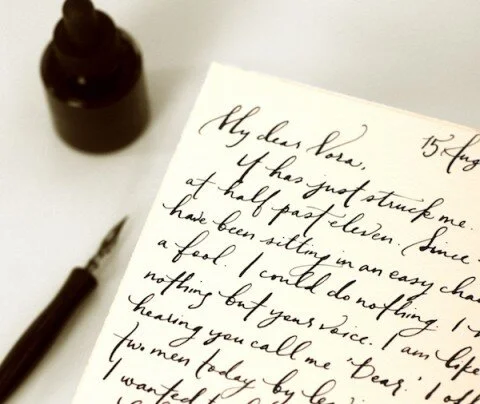 My dear Nora, 15 Aug
It has just struck me.
at half past eleven. Since
have been sitting in an easy chai
a fool. I could do nothing. I
nothing but your voice. I am like
hearing you call me 'Dear.' I off
two men today by
I wanted